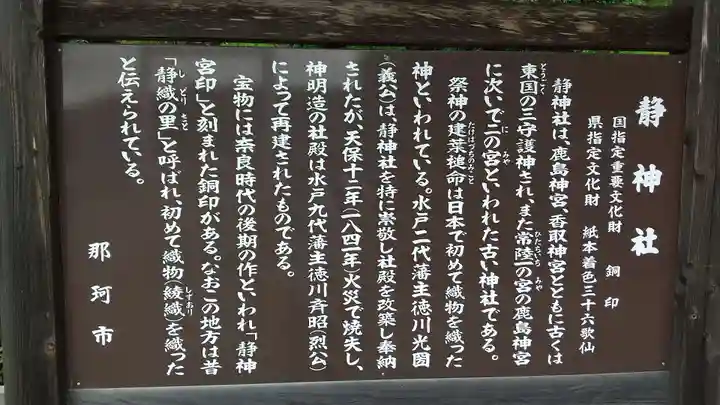 静神社
国指定重要文化財 銅印
県指定文化財 紙本着色三十六歌仙
静神社は、鹿島神宮、香取神宮とともに古くは
東国の三守護神され、また常陸一の宮の鹿島神宮
とうごく ひたちいち みや
に次いで二の宮といわれた古い神社である。
に みや
祭神の建葉槌命は日本で初めて織物を織った
たけはづちのみこと
神といわれている。水戸二代藩主徳川光圀
(義公)は、静神社を特に崇敬し社殿を改築し奉納
されたが、天保十二年(一八四一年)火災で焼失し、
神明造の社殿は水戸九代藩主徳川斉昭(烈公)
によって再建されたものである。
宝物には奈良時代の後期の作といわれ「静神
宮印」と刻まれた銅印がある。なおこの地方は昔
「静織の里」と呼ばれ、初めて織物(綾織)を織った
しどり さと しずおり
と伝えられている。
那珂市